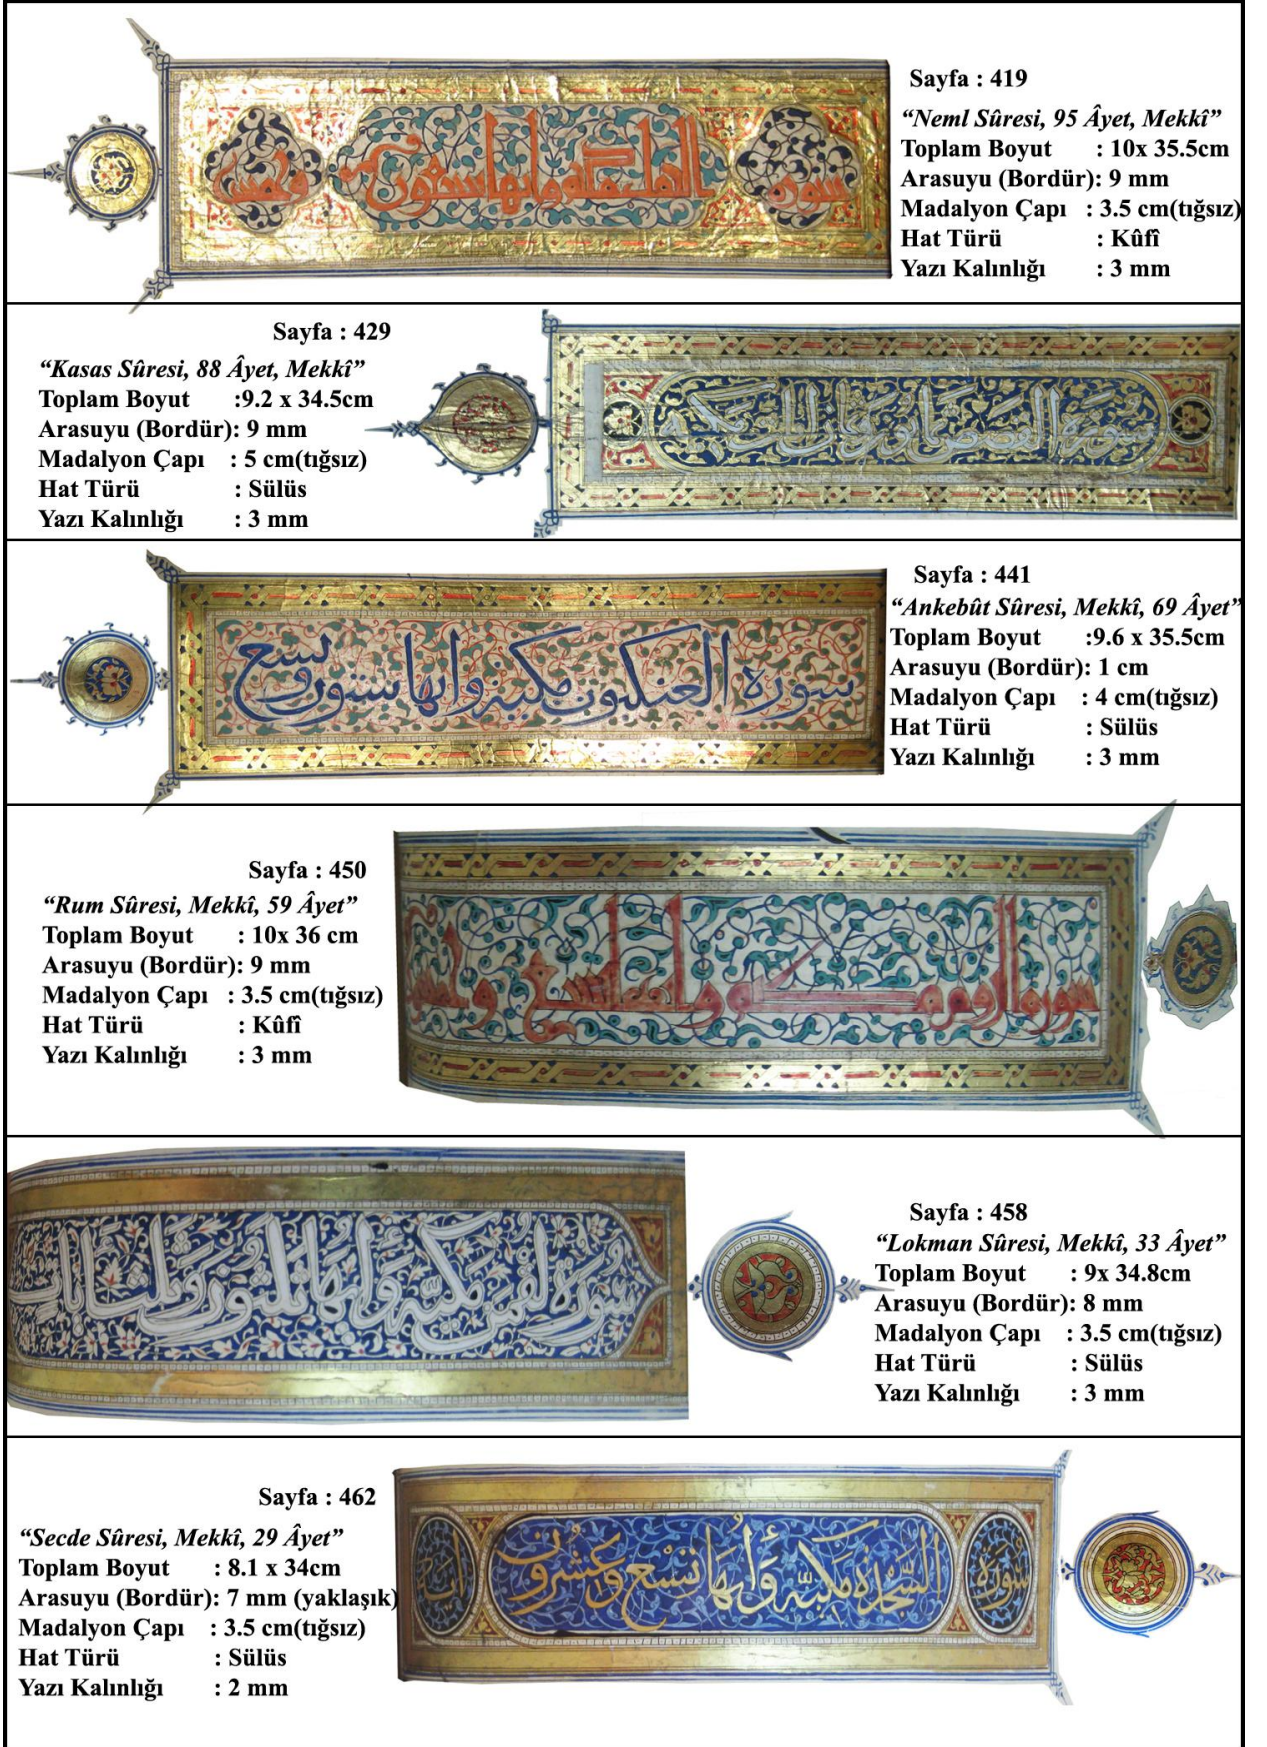 Sayfa : 419
“Neml Sûresi, 95 Âyet, Mekkî”
Toplam Boyut : 10x 35.5cm
Arasuyu (Bordür): 9 mm
Madalyon Çapı : 3.5 cm(tığsız)
Hat Türü : Kûfî
Yazı Kalınlığı : 3 mm
Sayfa : 429
“Kasas Sûresi, 88 Âyet, Mekkî”
Toplam Boyut :9.2 x 34.5cm
Arasuyu (Bordür): 9 mm
Madalyon Çapı : 5 cm(tığsız)
Hat Türü : Sülüs
Yazı Kalınlığı : 3 mm
سورة العنكبوت مكية وايها ستون وتسع
Sayfa : 441
“Ankebût Sûresi, Mekkî, 69 Âyet”
Toplam Boyut :9.6 x 35.5cm
Arasuyu (Bordür): 1 cm
Madalyon Çapı : 4 cm(tığsız)
Hat Türü : Sülüs
Yazı Kalınlığı : 3 mm
Sayfa : 450
“Rum Sûresi, Mekkî, 59 Âyet”
Toplam Boyut : 10x 36 cm
Arasuyu (Bordür): 9 mm
Madalyon Çapı : 3.5 cm(tığsız)
Hat Türü : Kûfî
Yazı Kalınlığı : 3 mm
سورة لقمن مكية وايها ثلثون وثلث ايات
Sayfa : 458
“Lokman Sûresi, Mekkî, 33 Âyet”
Toplam Boyut : 9x 34.8cm
Arasuyu (Bordür): 8 mm
Madalyon Çapı : 3.5 cm(tığsız)
Hat Türü : Sülüs
Yazı Kalınlığı : 3 mm
Sayfa : 462
“Secde Sûresi, Mekkî, 29 Âyet”
Toplam Boyut : 8.1 x 34cm
Arasuyu (Bordür): 7 mm (yaklaşık)
Madalyon Çapı : 3.5 cm(tığsız)
Hat Türü : Sülüs
Yazı Kalınlığı : 2 mm
سورة السجدة مكية وأيها تسع وعشرون